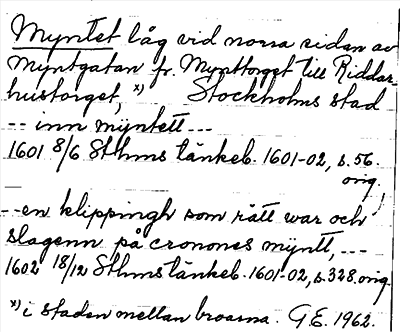 Myntet låg vid norra sidan av
Myntgatan fr. Mynttorget till Riddar-
hustorget, x) Stockholms stad
-- inn myntett ---
1601 8/6 Sthms tänkeb. 1601-02, s. 56.
orig.
--en klippingh som rätt war och
slagenn på cronones myntt, ---
1602 18/12 Sthms tänkeb. 1601-02, s. 328. orig.
x) i staden mellan broarna. G.E. 1962.